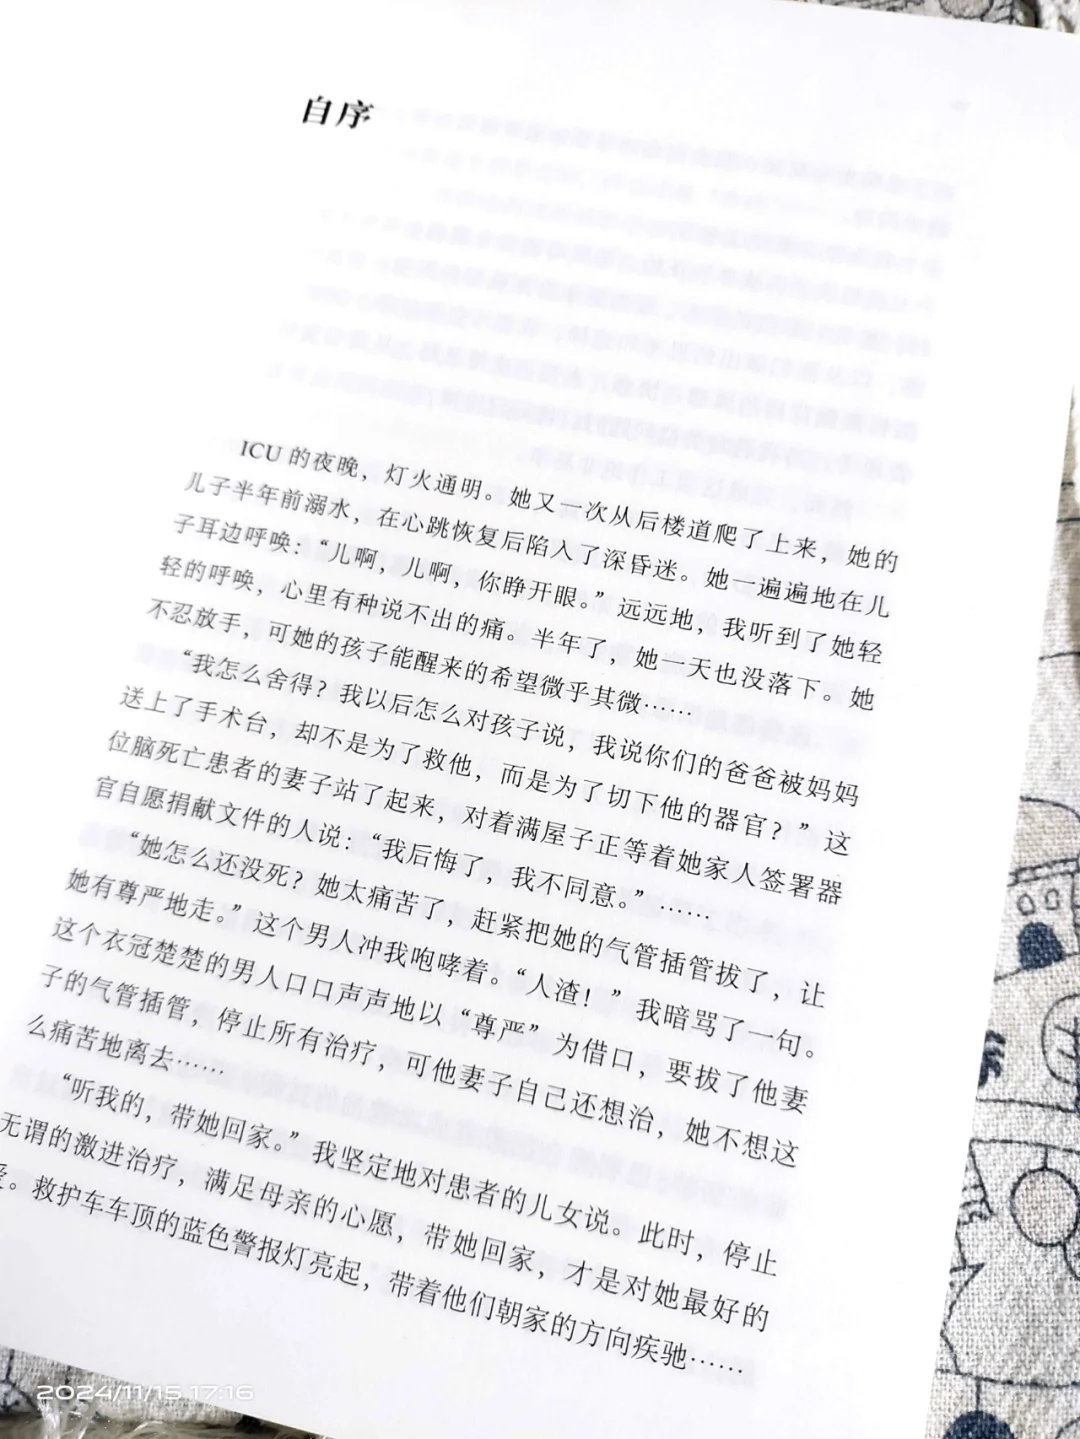 自序
ICU 的夜晚，灯火通明。她又一次从后楼道爬了上来，她的
儿子半年前溺水，在心跳恢复后陷入了深昏迷。她一遍遍地在儿
子耳边呼唤：“儿啊，儿啊，你睁开眼。”远远地，我听到了她轻
轻的呼唤，心里有种说不出的痛。半年了，她一天也没落下。她
不忍放手，可她的孩子能醒来的希望微乎其微……
“我怎么舍得？我以后怎么对孩子说，我说你们的爸爸被妈妈
送上了手术台，却不是为了救他，而是为了切下他的器官？”这
位脑死亡患者的妻子站了起来，对着满屋子正等着她家人签署器
官自愿捐献文件的人说：“我后悔了，我不同意。”……
“她怎么还没死？她太痛苦了，赶紧把她的气管插管拔了，让
她有尊严地走。”这个男人冲我咆哮着。“人渣！”我暗骂了一句。
这个衣冠楚楚的男人口口声声地以“尊严”为借口，要拔了他妻
子的气管插管，停止所有治疗，可他妻子自己还想治，她不想这
么痛苦地离去……
“听我的，带她回家。”我坚定地对患者的儿女说。此时，停止
无谓的激进治疗，满足母亲的心愿，带她回家，才是对她最好的
。救护车车顶的蓝色警报灯亮起，带着他们朝家的方向疾驰……
2024/11/15 17:16